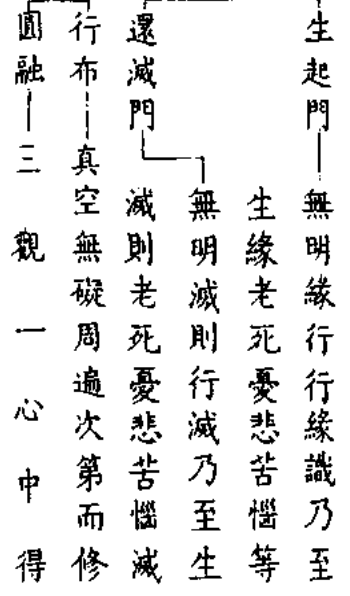 生起門
無明緣行行緣識乃至
生緣老死憂悲苦惱等
還滅門
無明滅則行滅乃至生
滅則老死憂悲苦惱滅
行布
真空無礙周遍次第而修
圓融
三觀一心中得